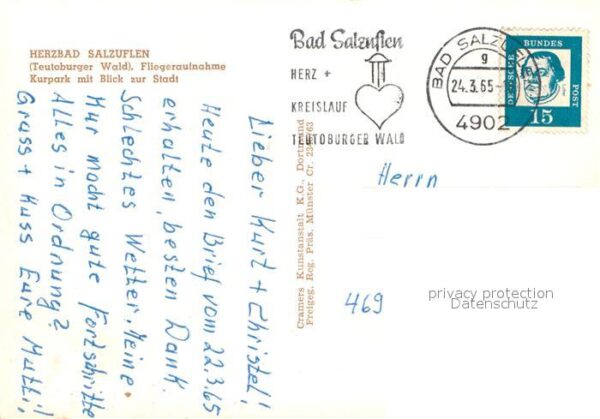 HERZBAD SALZUFLEN
(Teutoburger Wald). Fliegeraufnahme
Kurpark mit Blick zur Stadt
Lieber Kurt + Christel!
Heute den Brief vom 22.3.65
erhalten, besten Dank.
Schlechtes Wetter. Meine
Kur macht gute Fortschritte
Alles in Ordnung?
Gruss + Kuss Eure Mutti!
Cramers Kunstanstalt K.G., Dortmund
Freigeg. Reg. Präs. Münster Cr.
Bad Salzuflen
HERZ +
KREISLAUF
TEUTOBURGER WALD
BAD SALZUFLEN
g
24.3.65
4902
DEUTSCHE BUNDES POST
15
Herrn
469
privacy protection
Datenschutz